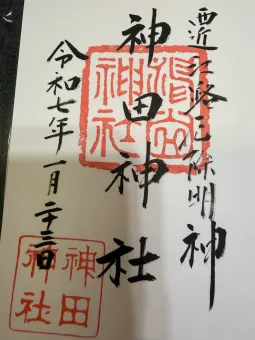 西近江路厄除明神
神田神社
令和七年一月二十三日
神田
神社